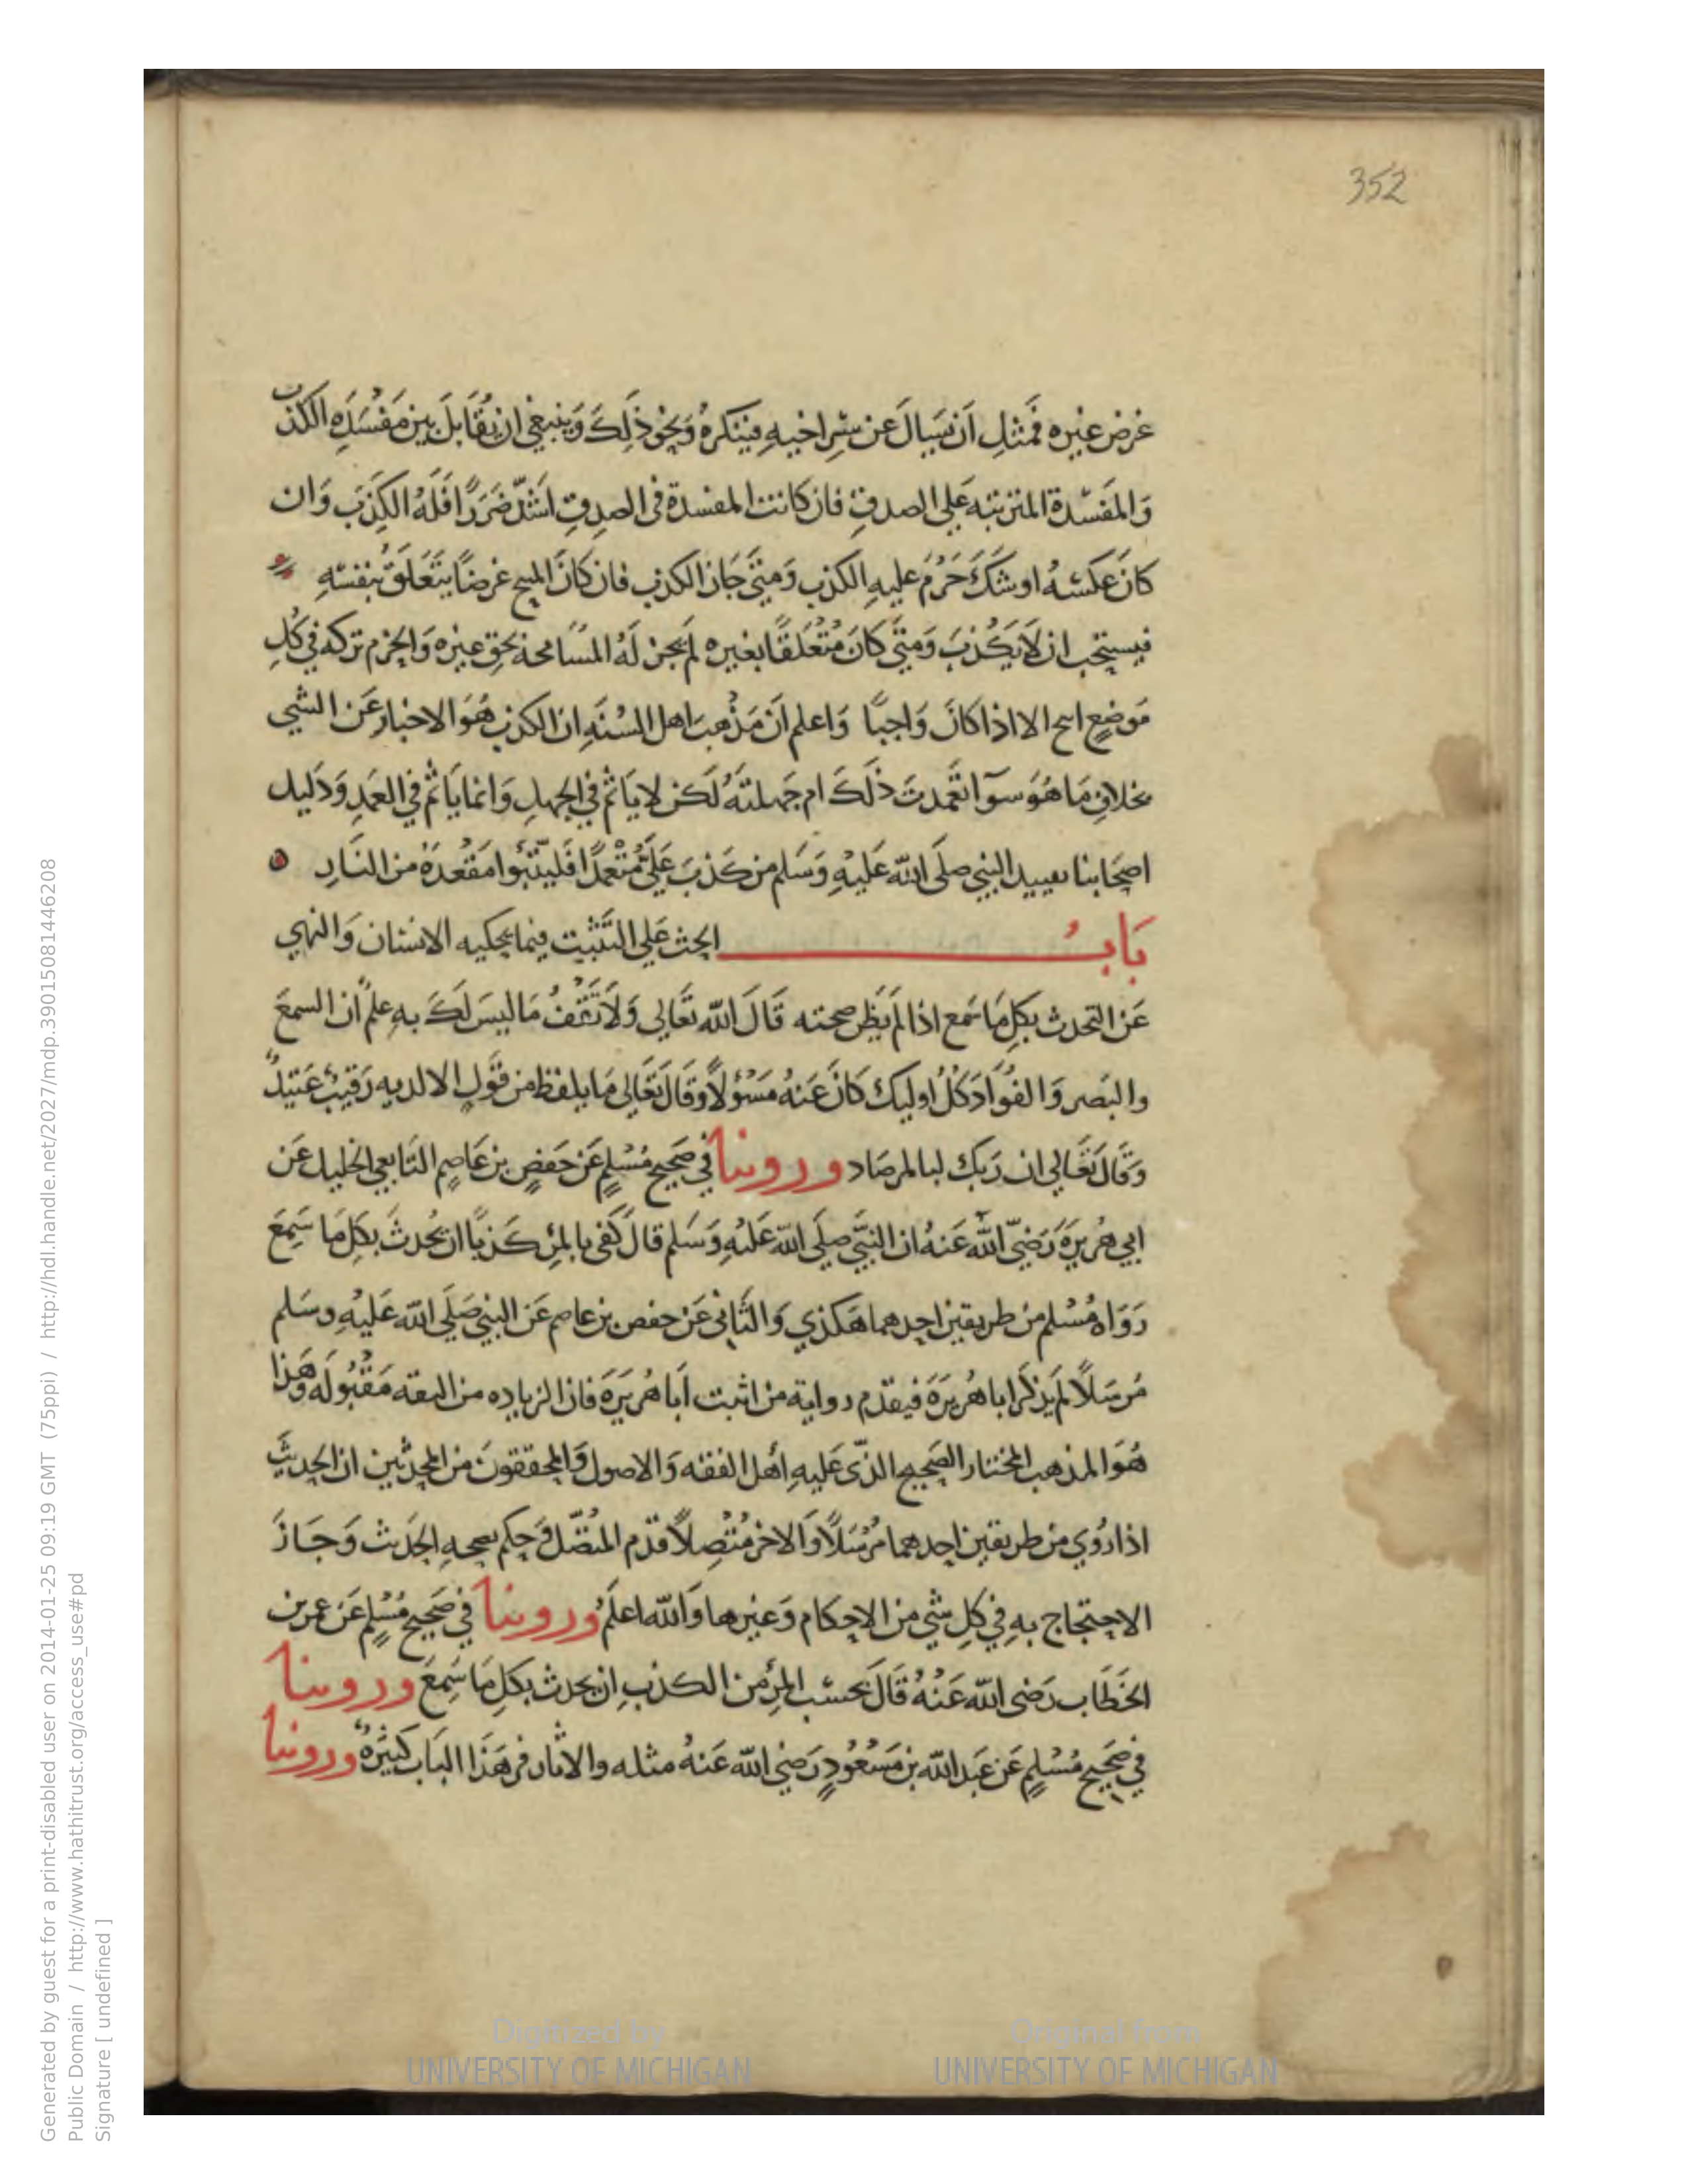 352
غرض غيره فمثل أن يسال عن سر اخيه فينكره ونحو ذلك وينبغي ان يقابل بين مفسده الكذب
والمفسدة المترتبه علي الصدق فان كانت المفسدة في الصدق اشد ضررا فله الكذب وان
كان عكسه او شك حرم عليه الكذب ومتي جاز الكذب فان كان المبيح غرضا يتعلق بنفسه
فيستحب ان لا يكذب ومتي كان متعلقا بغيره لم يجز له المسامحة بحق غيره والحزم تركه في كل
موضع ابيح الا اذا كان واجبا واعلم ان مذهب اهل السنه ان الكذب هو الاخبار عن الشي
بخلاف ما هو سوآ تعمدت ذلك ام جهلته لكن لا ياثم في الجهل وانما ياثم في العمد ودليل
اصحابنا تقييد النبي صلى الله عليه وسلم من كذب علي متعمدا فليتبوا مقعده من النار
باب الحث علي التثبت فيما يحكيه الانسان والنهي
عن التحدث بكل ما سمع اذا لم يظن صحته قال الله تعالي ولا تقف ما ليس لك به علم ان السمع
والبصر والفواد كل اوليك كان عنه مسؤلا وقال تعالي ما يلفظ من قول الا لديه رقيب عتيد
وقال تعالي ان ربك لبا لمرصاد وروينا في صحيح مسلم عن حفص بن عاصم التابعي الجليل عن
ابي هريرة رضي الله عنه ان النبي صلي الله عليه وسلم قال كفى بالمرء كذبا ان يحدث بكل ما سمع
رواه مسلم من طريقين احدهما هكذي والثاني عن حفص بن عاصم عن النبي صلي الله عليه وسلم
مرسلا لم يذكر ابا هريرة فيقدم رواية من اثبت ابا هريرة فان الزياده من الثقه مقبوله وهذا
هو المذهب المختار الصحيح الذي عليه أهل الفقه والاصول والمحققون من المحدثين ان الحديث
اذا روي من طريقين احدهما مرسلا والاخر متصلا قدم المتصل وحكم بصحه الحديث وجاز
الاحتجاج به في كل شي من الاحكام وغيرها والله اعلم وروينا في صحيح مسلم عن عمر بن
الخطاب رضي الله عنه قال بحسب المرء من الكذب ان يحدث بكل ما سمع وروينا
في صحيح مسلم عن عبد الله بن مسعود رضي الله عنه مثله والاثار في هذا الباب كثيرة وروينا
Digitized by
UNIVERSITY OF MICHIGAN
Original from
UNIVERSITY OF MICHIGAN
Generated by guest for a print-disabled user on 2014-01-25 09:19 GMT (75ppi) / http://hdl.handle.net/2027/mdp.39015081446208
Public Domain / http://www.hathitrust.org/access_use#pd
Signature [ undefined ]